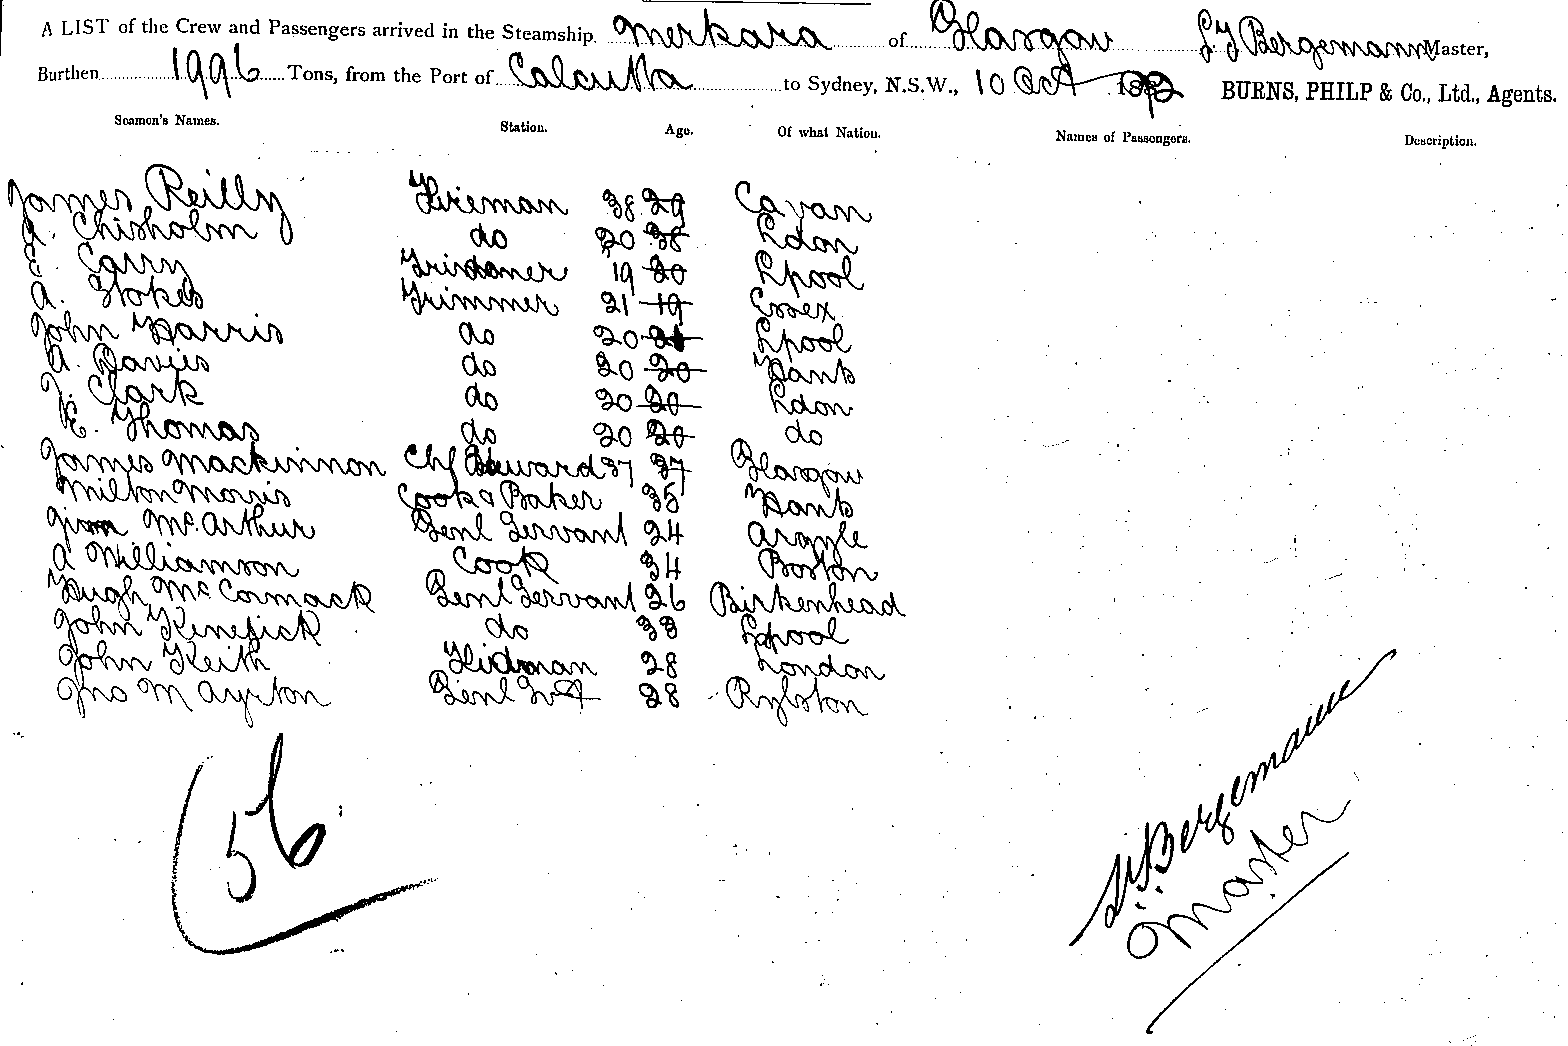 A LIST of the Crew and Passengers arrived in the Steamship Merkara of Glasgow Bergemann Master,
Burthen 1996 Tons, from the Port of Calcutta to Sydney, N.S.W., 10 Oct 1892 BURNS, PHILP & Co., Ltd., Agents.
Seamen's Names. Station. Age. Of what Nation. Names of Passengers. Description.
James Reilly Fireman 38 29 Cavan
A. Chisholm do 20 38 Ldon
E. Carry Trimmer 19 20 Lpool
A. Stokes Trimmer 21 19 Essex
John Harris do 20 21 Lpool
A. Davies do 20 20 Hants
J. Clark do 20 20 Ldon
E. Thomas do 20 20 do
James Mackinnon Chf Steward 37 37 Glasgow
Milton Morris Cook & Baker 35 Hants
McArthur Genl Servant 24 Argyle
A Williamson Cook 34 Boston
Hugh McCormack Genl Servant 26 Birkenhead
John Kenefick do 33 Lpool
John Keith 28 London
Jno M Ayrton Genl Svt 28 Rylston
56
Bergemann
Master